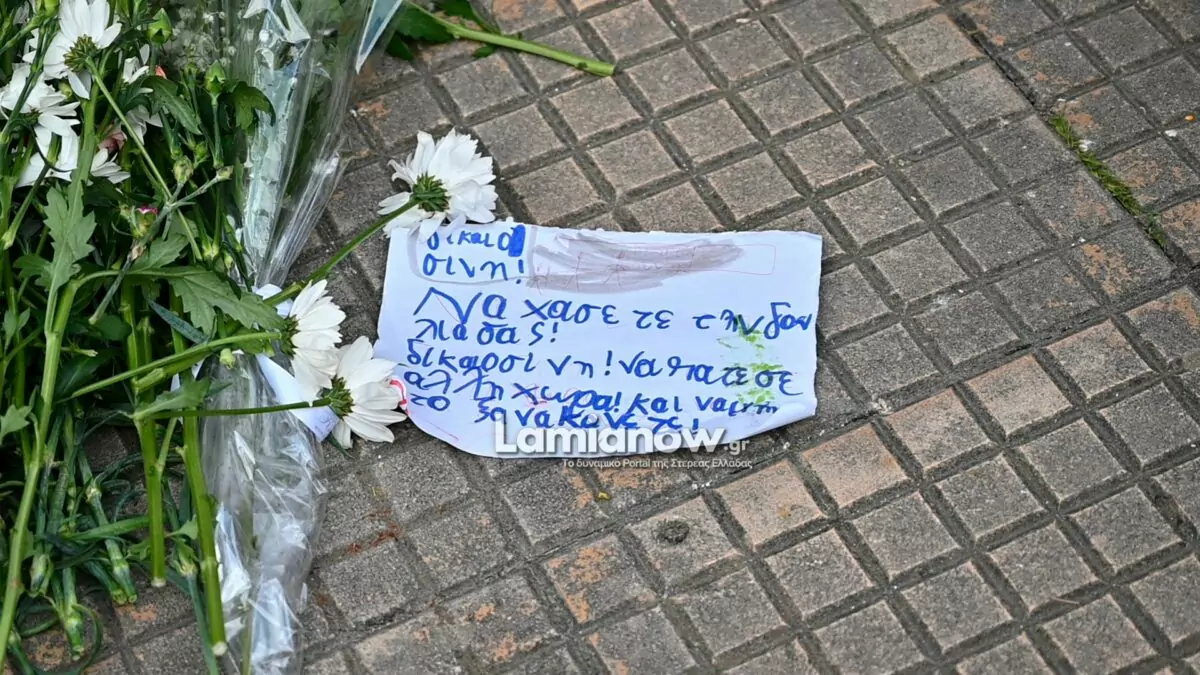 δικαιο
σινη!
Να χασε τε τηΝ δου
λια σας!
δικαιοσι νη! να πατε σε
αλλη χωρα! και να μην
το ξανακανετε!
Lamianow.gr
Το δυναμικό Portal της Στερεάς Ελλάδας